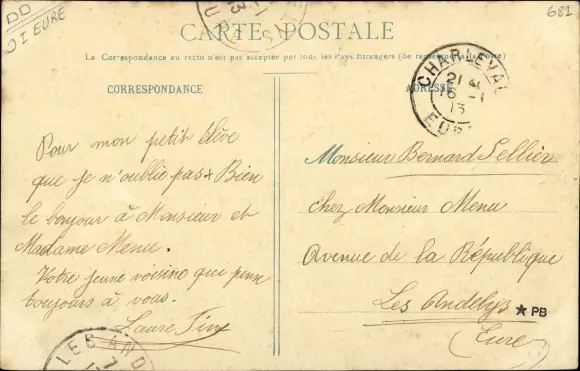 DD
DI EURE
681
CARTE POSTALE
La Correspondance au recto n'est pas acceptée par tous les Pays Etrangers (Se renseigner à la Poste)
CORRESPONDANCE
ADRESSE
CHARLEVAL
21
6 -1
13
EURE
Pour mon petit élève
que je n'oublie pas + Bien
le bonjour à Monsieur et
Madame Menu.
Votre jeune voisine qui pense
toujours à vous.
Laure
Monsieur Bernard Tellier
chez Monsieur Menu
Avenue de la République
Les Andelys
(Eure)
★ PB
LES AND